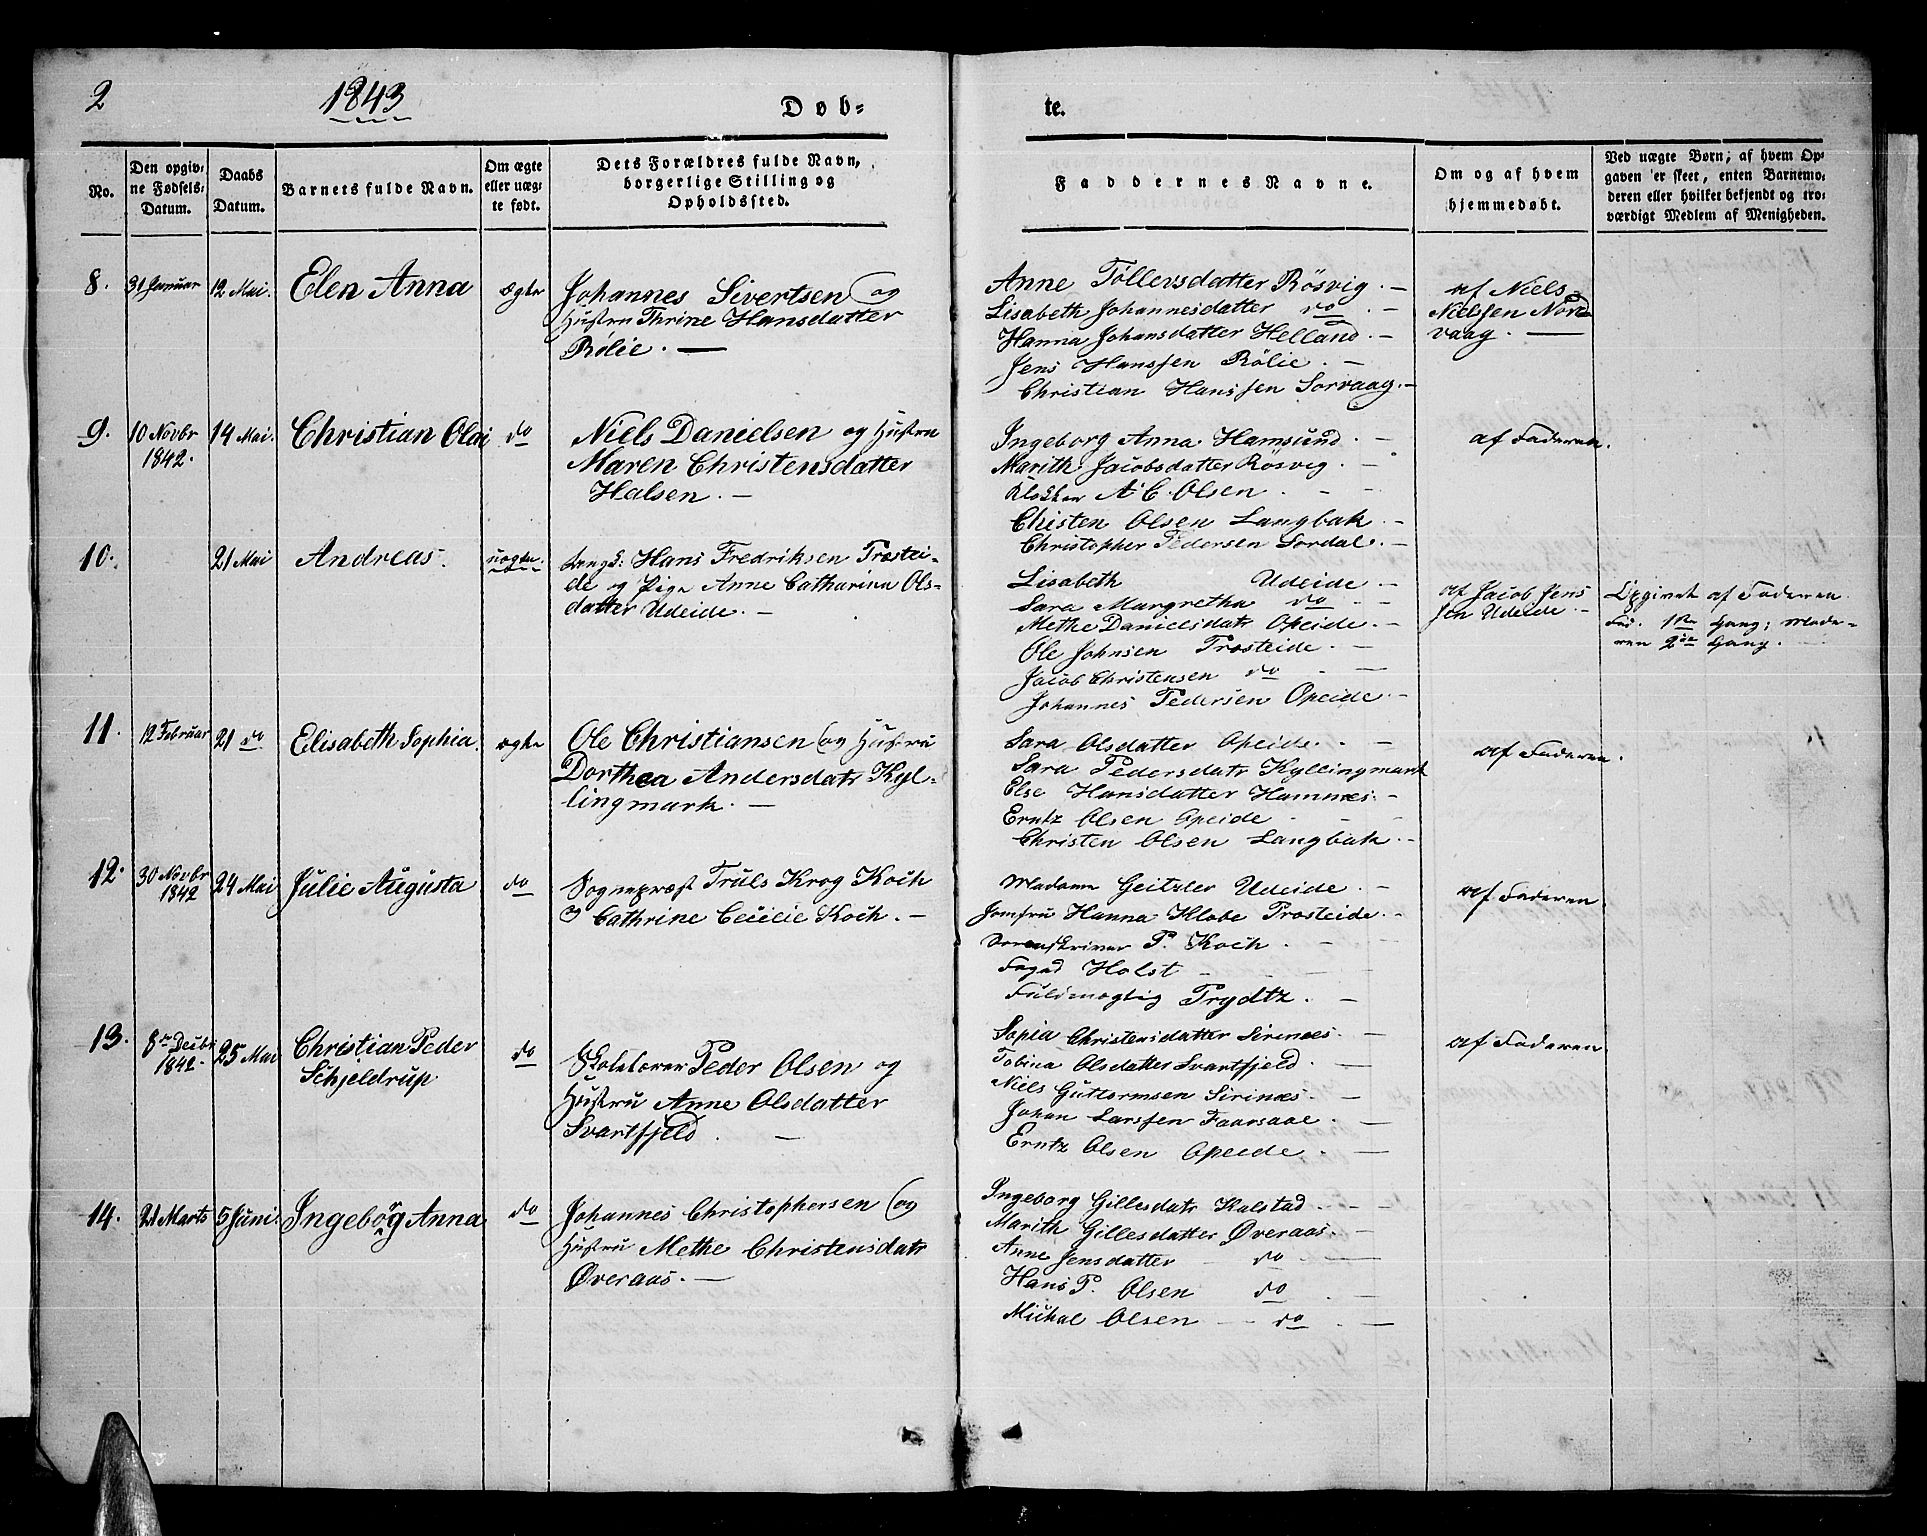 2
1843
Døb-
te.
No.
Den opgiv-
ne Fødsels-
Datum.
Daabs
Datum.
Barnets fulde Navn.
Om ægte
eller uæg-
te født.
Dets Forældres fulde Navn,
borgerlige Stilling og
Opholdssted.
Faddernes Navne.
Om og af hvem
hjemmedøbt.
Ved uægte Børn; af hvem Op-
gaven er skeet, enten Barnemo-
deren eller hvilket bekjendt og tro-
værdigt Medlem af Menigheden.
8.
31 Januar
12 Mai.
Elen Anna
ægte
Johannes Sivertsen og
Hustru Thrine Hansdatter
Rølie. —
Anne Tøllersdatter Rösvig. —
Lisabeth Johannesdatter do. —
Hanna Johansdatter Helland. —
Jens Hanssen Rölie. —
Christian Hanssen Sörvaag. —
af Niels
Nielsen Nord-
vaag. —
9.
10 Novbr
1842.
14 Mai.
Christian Olai
do
Niels Danielsen og Hustru
Maren Christensdatter
Halsen. —
Ingeborg Anna Hamsund. —
Marith Jacobsdatter Rösvig. —
Klokker A. C. Olsen. —
Christen Olsen Langbak. —
Christopher Pedersen Sördal. —
af Faderen.
10.
21 Mai
Andreas.
uægte.
Ungk: Hans Fredriksen Trostei-
de og Pige Anne Catharina Ols-
datter Udeide. —
Lisabeth Udeide —
Sara Margretha do —
Methe Danielsdatr Opeide. —
Ole Johnsen Trosteide. —
Jacob Christensen do —
Johannes Pedersen Opeide. —
af Jacob Jens
sen Udeide. —
Opgivet af Faderen.
Fad. 1ste Gang; Mode-
ren 2den Gang.
11.
12 Februar
21 do
Elisabeth Sophia.
ægte
Ole Christiansen og Hustru
Dorthea Andersdatr Kyl-
lingmark. —
Sara Olsdatter Opeide. —
Sara Pedersdatr Kyllingmark
Else Hansdatter Hamnes. —
Erntz Olsen Opeide. —
Christen Olsen Langbak. —
af Faderen.
12.
30 Novbr
1842
24 Mai
Julie Augusta
do
Sognepræst Truls Krog Koch
og Cathrine Cecilie Koch. —
Madame Geitzler Udeide. —
Jomfru Hanna Klobe Prosteide. —
Sorenskriver P. Koch. —
Foged Holst —
Fuldmægtig Prydtz. —
af Faderen.
13.
8de Decbr
1842.
25 Mai
Christian Peder
Schjeldrup
do
Skolelærer Peder Olsen og
Hustru Anne Olsdatter
Svartfjeld. —
Sopia Christensdatter Sirenæs. —
Tobina Olsdatter Svartfjeld. —
Niels Guttormsen Sirinæs. —
Johan Larssen Faarsaae. —
Erntz Olsen Opeide. —
af Faderen.
14.
21 Marts
5 Juni.
Ingebørg Anna
do
Johannes Christophersen og
Hustru Methe Christensdatr
Øveraas. —
Ingeborg Gillesdatr Kalstad. —
Marith Gillesdatter Øveraas. —
Anne Jensdatter do. —
Hans P. Olsen do —
Michal Olsen — do. —